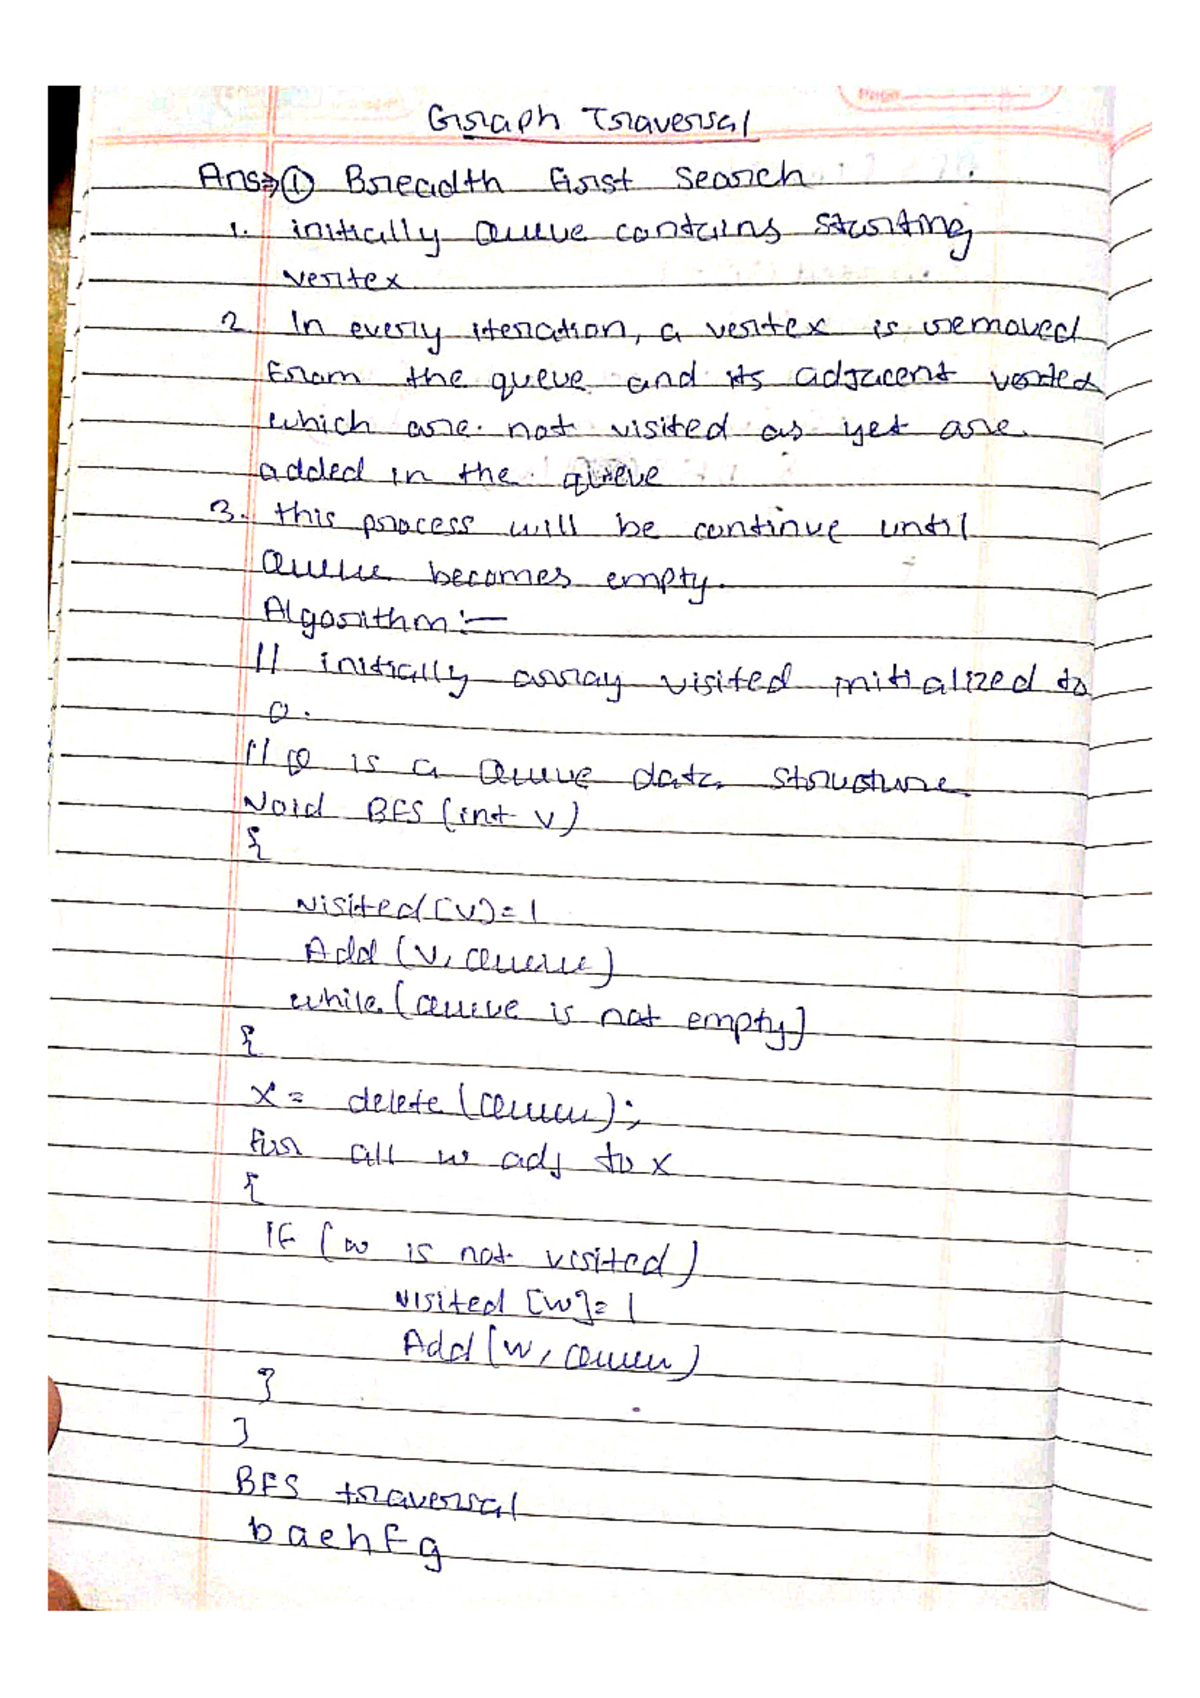 Page
Graph Traversal
Ans⇒ ① Breadth First Search
1. initially Queue contains starting
vertex
2 In every iteration, a vertex is removed
From the queue and its adjacent vertex
which are not visited as yet are
added in the queue
3. this process will be continue until
Queue becomes empty.
Algorithm :-
// initially array visited initialized to
0.
// Q is a Queue data structure.
Void BFS (int v)
{
Visited[v]=1
Add (v, Queue)
while (Queue is not empty)
{
x = delete (Queue);
For all w adj to x
{
IF (w is not visited)
Visited [w]=1
Add (w, Queue)
}
}
BFS traversal
b a e h F g